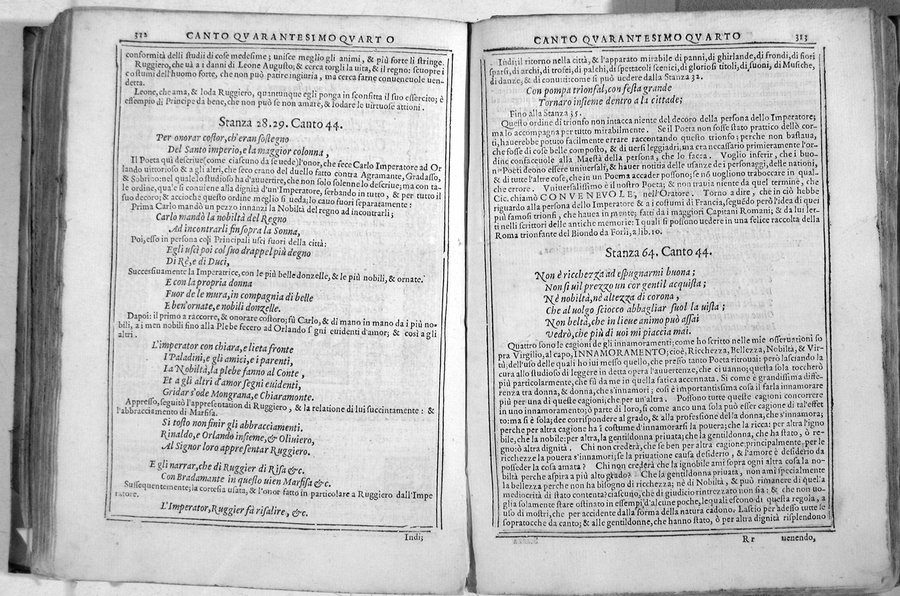 312 CANTO QVARANTESIMO QVARTO
conformità delli studii di cose medesime; unisce meglio gli animi, & più forte li stringe.
Ruggiero, che uà a i danni di Leone Augusto, & cerca torgli la uita, & il regno: scuopre i
costumi dell'huomo forte, che non può patire ingiuria, ma cerca farne conueneuole uen-
detta.
Leone, che ama, & loda Ruggiero, quantunque egli ponga in sconfitta il suo essercito; è
essempio di Principe da bene, che non può se non amare, & lodare le uirtuose attioni.
Stanza 28.29. Canto 44.
Per onorar costor, ch'eran sostegno
Del Santo imperio, e la maggior colonna,
Il Poeta quì descriue, come ciascuno da se uede, l'onor, che fece Carlo Imperatore ad Or
lando uittorioso & a gli altri, che seco erano del duello fatto contra Agramante, Gradasso,
& Sobrino: nel quale lo studioso ha d'auuertire, che non solo solenne lo descriue; ma con ta-
le ordine, qual si conuiene alla dignità d'un'Imperatore, serbando in tutto, & per tutto il
suo decoro; & acciocche questo ordine meglio si ueda; lo cauo fuori separatamente:
Prima Carlo mandò un pezzo innanzi la Nobiltà del regno ad incontrarli;
Carlo mandò la nobiltà del Regno
Ad incontrarli fin sopra la Sonna,
Poi, esso in persona coi Principali uscì fuori della città:
Egli uscì poi col suo drappel più degno
Di Rè, e di Duci,
Successiuamente la Imperatrice, con le più belle donzelle, & le più nobili, & ornate.
E con la propria donna
Fuor de le mura, in compagnia di belle
E ben'ornate, e nobili donzelle.
Dapoi: il primo a raccorre, & onorare costoro; fù Carlo, & di mano in mano da i più no-
bili, a i men nobili fino alla Plebe fecero ad Orlando segni euidenti d'amor; & così a gli
altri.
L'imperator con chiara, e lieta fronte
I Paladini, e gli amici, e i parenti,
La Nobiltà, la plebe fanno al Conte,
Et a gli altri d'amor segni euidenti,
Gridar s'ode Mongrana, e Chiaramonte.
Appresso, seguitò l'appresentation di Ruggiero, & la relatione di lui succintamente: &
l'abbracciamento di Marfisa.
Si tosto non finir gli abbracciamenti.
Rinaldo, e Orlando insieme, & Oliuiero,
Al Signor loro appresentar Ruggiero.
E gli narrar, che di Ruggier di Risa &c.
Con Bradamante in questo uien Marfisa &c.
Susseguentemente, la cortesia usata, & l'onor fatto in particolare a Ruggiero dall'Impe
ratore.
L'Imperator, Ruggier fà risalire, &c.
Indi;
CANTO QVARANTESIMO QVARTO 313
Indi; il ritorno nella città, & l'apparato mirabile di panni, di ghirlande, di frondi, di fiori
sparsi, di archi, di trofei, di palchi, di spettacoli scenici, di gloriosi titoli, di suoni, di Musiche,
di danze, & di conuiti; come si può uedere dalla Stanza 32.
Con pompa trionfal, con festa grande
Tornaro insieme dentro a la cittade;
Fino alla Stanza 35.
Questo ordine di trionfo non intacca niente del decoro della persona dello Imperatore;
ma lo accompagna per tutto mirabilmente. Se il Poeta non fosse stato prattico delle cor-
ti, hauerebbe potuto facilmente errare raccontando questo trionfo; perche non bastaua,
che fosse di cose belle composto, & di uersi leggiadri, ma era necessario primieramente l'or-
dine confaceuole alla Maestà della persona, che lo facea. Voglio inferir, che i buo-
ni Poeti deono essere uniuersali, & hauer notitia delle usanze de i personaggi, delle nationi,
& di tutte l'altre cose, che in un Poema accader possono; se nò uogliono traboccare in qual-
che errore. Vniuersalissimo è il nostro Poeta; & non trauia niente da quel termine, che
Cic. chiamò CONVENEVOLE, nell'Oratore. Torno a dire, che in ciò hebbe
riguardo alla persona dello Imperatore & a i costumi di Francia, seguendo però l'idea di quei
più famosi trionfi, che hauea in mente; fatti da i maggiori Capitani Romani; & da lui let-
ti nelli scrittori delle antiche memorie: I quali si possono uedere in una felice raccolta della
Roma trionfante del Biondo da Forlì, a lib. 10.
Stanza 64. Canto 44.
Non è ricchezza ad espugnarmi buona;
Non sì uil prezzo un cor gentil acquista;
Nè nobiltà, nè altezza di corona,
Che al uolgo sciocco abbagliar suol la uista;
Non beltà, che in lieue animo può assai
Vedrò, che più di uoi mi piaccia mai.
Quattro sono le cagioni de gli innamoramenti; come ho scritto nelle mie osseruationi so
pra Virgilio, al capo, INNAMORAMENTO; cioè, Ricchezza, Bellezza, Nobiltà, & Vir-
tù; dell'uso delle quali ho iui messo quello, che presso tanto Poeta ritrouai: però lasciando la
cura allo studioso di leggere in detta opera l'auuertenze, che ci uanno; questa sola toccherò
più particolarmente, che fù da me in quella fatica accennata. Si come è grandissima diffe-
renza tra donna, & donna, che s'innamori; così è importantissima cosa il farla innamorare
più per una di queste cagioni, che per un'altra. Possono tutte queste cagioni concorrere
in uno innamoramento; ò parte di loro, sì come anco una sola può esser cagione di tal'effet
to: ma si è sola; dee corrispondere al grado, & alla professione della donna, che s'innamora;
perche per altra cagione ha in costume d'innamorarsi la pouera; che la ricca: per altra l'igno
bile, che la nobile: per altra, la gentildonna priuata; che la gentildonna, che ha stato, ò re-
gno: ò altra dignità. Chi non crederà, che se ben per altra cagione: principalmente, per le
ricchezze la pouera s'innamori; se la priuatione causa desiderio, & l'amore è desiderio da
posseder la cosa amata? Chi non crederà che la ignobile ami sopra ogni altra cosa la no-
biltà perche aspira a più alto grado? Che la gentildonna priuata, non ami specialmente
la bellezza perche non ha bisogno di ricchezza; nè di Nobiltà, & può rimanere di quella
mediocrità di stato contenta? ciascuno, che di giudicio rintrezzato non sia: & che non uo-
glia solamente stare ostinato in essempi d'alcune poche, le quali escono di questa regola, a
uso di mostri, che per accidente dalla forma della natura cadono. Lascio per adesso tutte le
sopratocche da canto; & alle gentildonne, che hanno stato, ò per altra dignità risplendono
Rr uenendo,